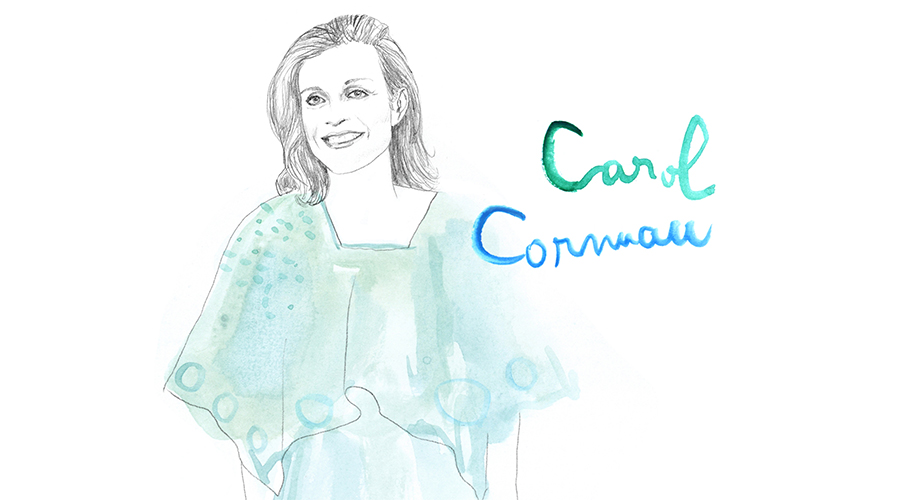 Carol
Cornuau